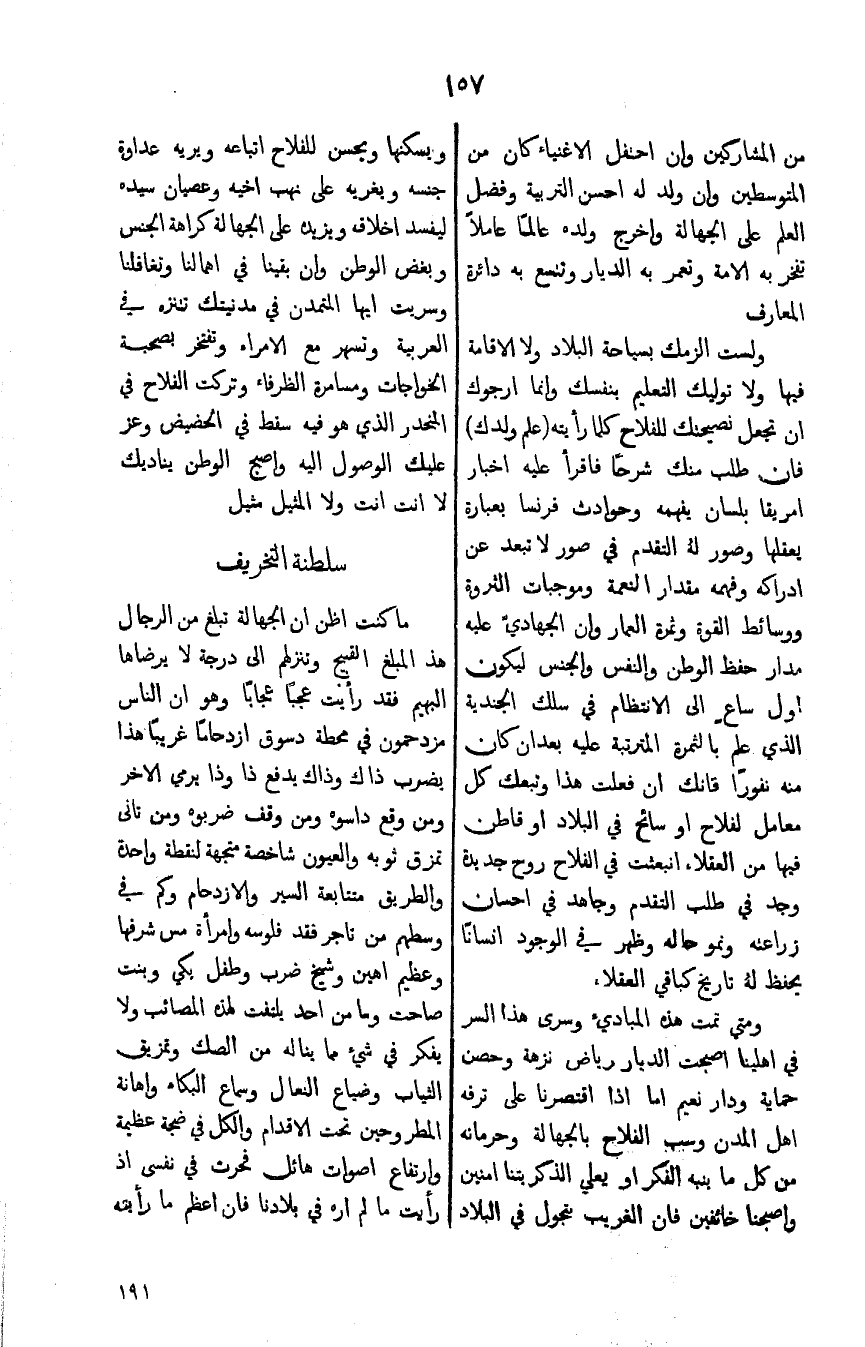 ١٥٧
من المشاركين وان احتفل الاغنياء كان من
المتوسطين وان ولد له احسن التربية وفضل
العلم على الجهالة واخرج ولده عالمًا عاملاً
تفخر به الامة وتعمر به الديار وتتسع به دائرة
المعارف
ولست الزمك بسياحة البلاد ولا الاقامة
فيها ولا توليك التعليم بنفسك وانما ارجوك
ان تجعل نصيحتك للفلاح كلما رأيته (علم ولدك)
فان طلب منك شرحًا فاقرأ عليه اخبار
امريقا بلسان يفهمه وحوادث فرنسا بعبارة
يعقلها وصور لهُ التقدم في صور لا تبعد عن
ادراكه وفهمه مقدار النعمة وموجبات الثروة
ووسائط القوة وثمرة العمار وان الجهاديّ عليه
مدار حفظ الوطن والنفس والجنس ليكون
اول ساعٍ الى الانتظام في سلك الجندية
الذي علم بالثمرة المترتبة عليه بعد ان كان
منه نفورًا فانك ان فعلت هذا وتبعك كل
معامل لفلاح او سائح في البلاد او قاطن
فيها من العقلاء انبعثت في الفلاح روح جديدة
وجد في طلب التقدم وجاهد في احسان
زراعته ونمو حاله وظهر في الوجود انسانًا
يحفظ لهُ تاريخ كباقي العقلاء
ومتى تمت هذه المبادئ وسرى هذا السر
في اهلينا اصبحت الديار رياض نزهة وحصن
حماية ودار نعيم اما اذا اقتصرنا على ترفه
اهل المدن وسب الفلاح بالجهالة وحرمانه
من كل ما ينبه الفكر او يعلي الذكر بتنا امنين
واصبحنا خائفين فان الغريب يتجول في البلاد
ويسكنها ويحسن للفلاح اتباعه ويريه عداوة
جنسه ويغريه على نهب اخيه وعصيان سيده
ليفسد اخلاقه ويزيده على الجهالة كراهة الجنس
وبغض الوطن وان بقينا في اهمالنا وتغافلنا
وسريت ايها المتمدن في مدنيتك تتنزه في
العربية وتسهر مع الامراء وتفتخر بصحبة
الخواجات ومسامرة الظرفاء وتركت الفلاح في
المنحدر الذي هو فيه سقط في الحضيض وعز
عليك الوصول اليه واصبح الوطن يناديك
لا انت انت ولا المثيل مثيل
سلطنة التخريف
ما كنت اظن ان الجهالة تبلغ من الرجال
هذ المبلغ القبيح وتنزلهم الى درجة لا يرضاها
البهيم فقد رأيت عجبًا عجابًا وهو ان الناس
مزدحمون في محطة دسوق ازدحامًا غريبًا هذا
يضرب ذاك وذاك يدفع ذا وذا يرمي الاخر
ومن وقع داسوه ومن وقف ضربوه ومن تانى
تمزق ثوبه والعيون شاخصة متجهة لنقطة واحدة
والطريق متتابعة السير والازدحام وكم في
وسطهم من تاجر فقد فلوسه وامرأة مس شرفها
وعظيم اهين وشيخ ضرب وطفل بكي وبنت
صاحت وما من احد يلتفت لهذه المصائب ولا
يفكر في شيء مما يناله من الصك وتمزيق
الثياب وضياع النعال وسماع البكاء واهانة
المطروحين تحت الاقدام والكل في ضجة عظيمة
وارتفاع اصوات هائل فحرت في نفسى اذ
رأيت ما لم اره في بلادنا فان اعظم ما رأيته
١٩١